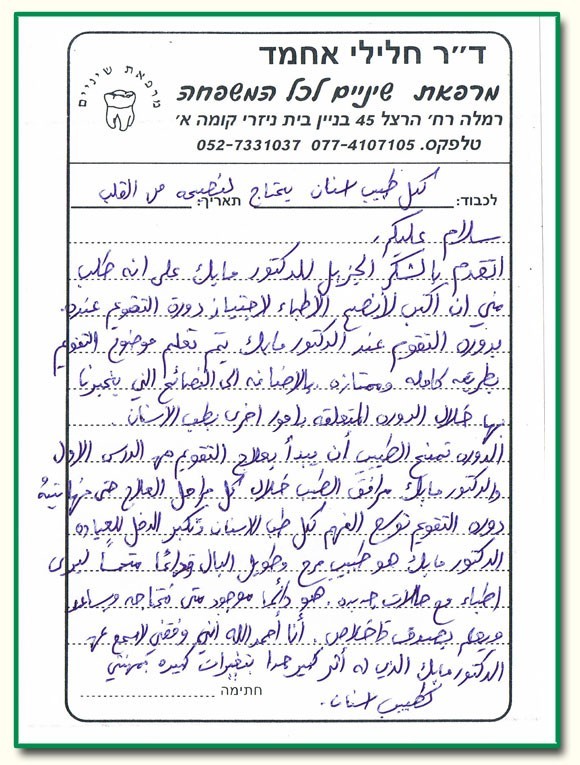 ד״ר חלילי אחמד
מרפאת שיניים
מרפאת שיניים לכל המשפחה
רמלה רח׳ הרצל 45 בניין בית ניזרי קומה א׳
טלפקס. 077-4107105 052-7331037
לכבוד: لكل طبيب اسنان يحتاج תאריך: لنصيحه من القلب
سلام عليكم،
اتقدم بالشكر الجزيل للدكتور مايك على انه طلب
مني ان اكتب لأنصح الأطباء لاجتياز دورة التقويم عنده.
بدوره التقويم عند الدكتور مايك يتم تعلم موضوع التقويم
بطريقه كامله وممتازه بالاضافه الى النصائح التي يخبرنا
بها خلال الدوره المتعلقه بامور اخرى بطب الاسنان.
الدوره تمنح الطبيب أن يبدأ بعلاج التقويم من الدرس الاول
والدكتور مايك مرافق الطبيب خلال كل مراحل العلاج حتى نهايته
دوره التقويم توسع الفهم لكل طب الاسنان وتكبر الدخل للعياده
الدكتور مايك هو طبيب مرح وطويل البال ودائما متحمسا ليرى
اطباء مع حالات جديده. هو دائما موجود متى نحتاجه ويساعد
ويعلم بصدق واخلاص. أنا أحمد الله انني وفقني لاسمع عن
الدكتور مايك الذي له أثر كبير جدا بتغيرات كبيره بمهنتي
كطبيب اسنان.
חתימה